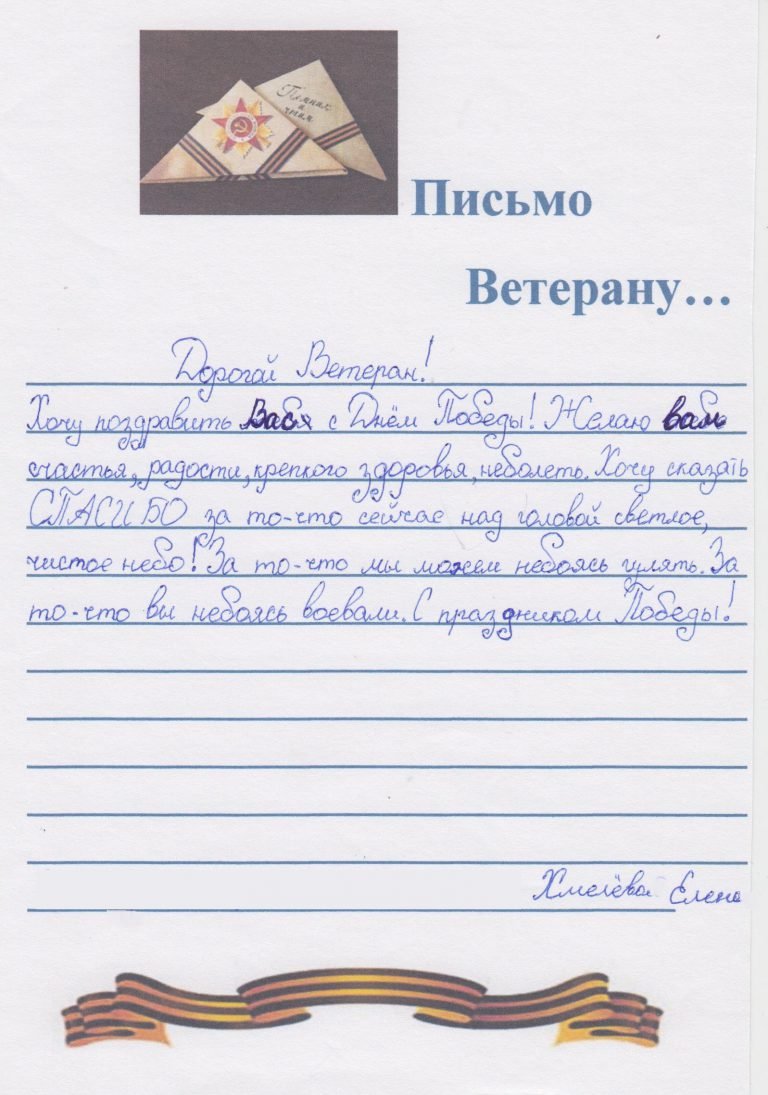 Помним
и
чтим
Письмо
Ветерану...
Дорогой Ветеран!
Хочу поздравить Вас с Днём Победы! Желаю вам
счастья, радости, крепкого здоровья, неболеть. Хочу сказать
СПАСИБО за то-что сейчас над головой светлое,
чистое небо! За то-что мы можем небоясь гулять. За
то-что вы небоясь воевали. С праздником Победы!
Хмелёва Елена